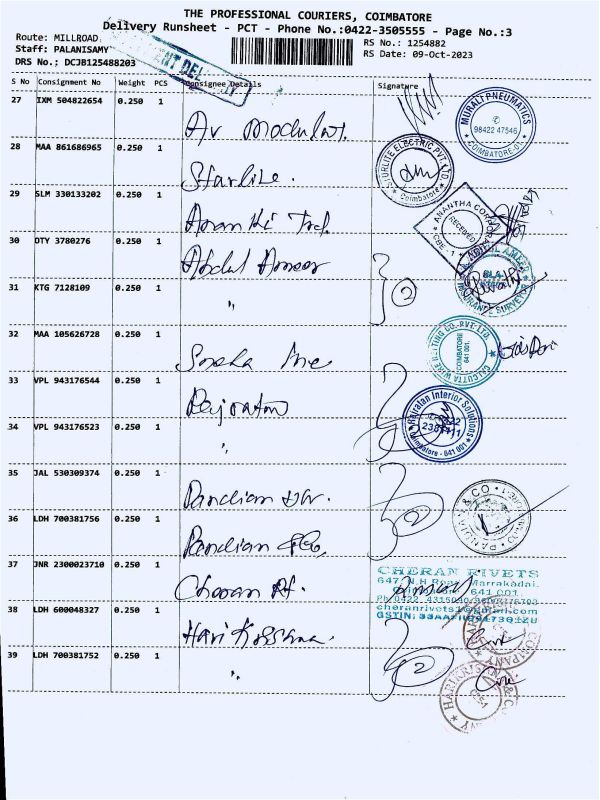 THE PROFESSIONAL COURIERS, COIMBATORE
Delivery Runsheet - PCT - Phone No.:0422-3505555 - Page No.:3
Route: MILLROAD
RS No.: 1254882
Staff: PALANISAMY
RS Date: 09-Oct-2023
DRS No.: DCJB125488203
S No Consignment No Weight PCS Consignee Details Signature
27 IXM 504822654 0.250 1
MURALI PNEUMATICS
98422 47546
COIMBATORE-01.
28 MAA 861686965 0.250 1 Starlite.
STURLITE ELECTRIC PVT. LTD
Coimbatore
29 SLM 330133202 0.250 1
ANANTHA CORPORATION
RECEIVED
CBE - 1
30 DTY 3780276 0.250 1 Abdul Ameer
INSURANCE SURVEYOR
31 KTG 7128109 0.250 1 "
2
32 MAA 105626728 0.250 1 Sneha Inc
CALCUTTA WIRE NETTING CO. PVT. LTD.
COIMBATORE
641 001.
33 VPL 943176544 0.250 1 Rajratan
Rajratan Interior Solutions
Coimbatore - 641 001
34 VPL 943176523 0.250 1 "
2
35 JAL 530309374 0.250 1 Pandian
36 LDH 700381756 0.250 1 Pandian
2
37 JNR 2300023710 0.250 1 Cheran
CHERAN RIVETS
641 001
38 LDH 600048327 0.250 1 Hari Krishna.
COMPANY
39 LDH 700381752 0.250 1 "
2